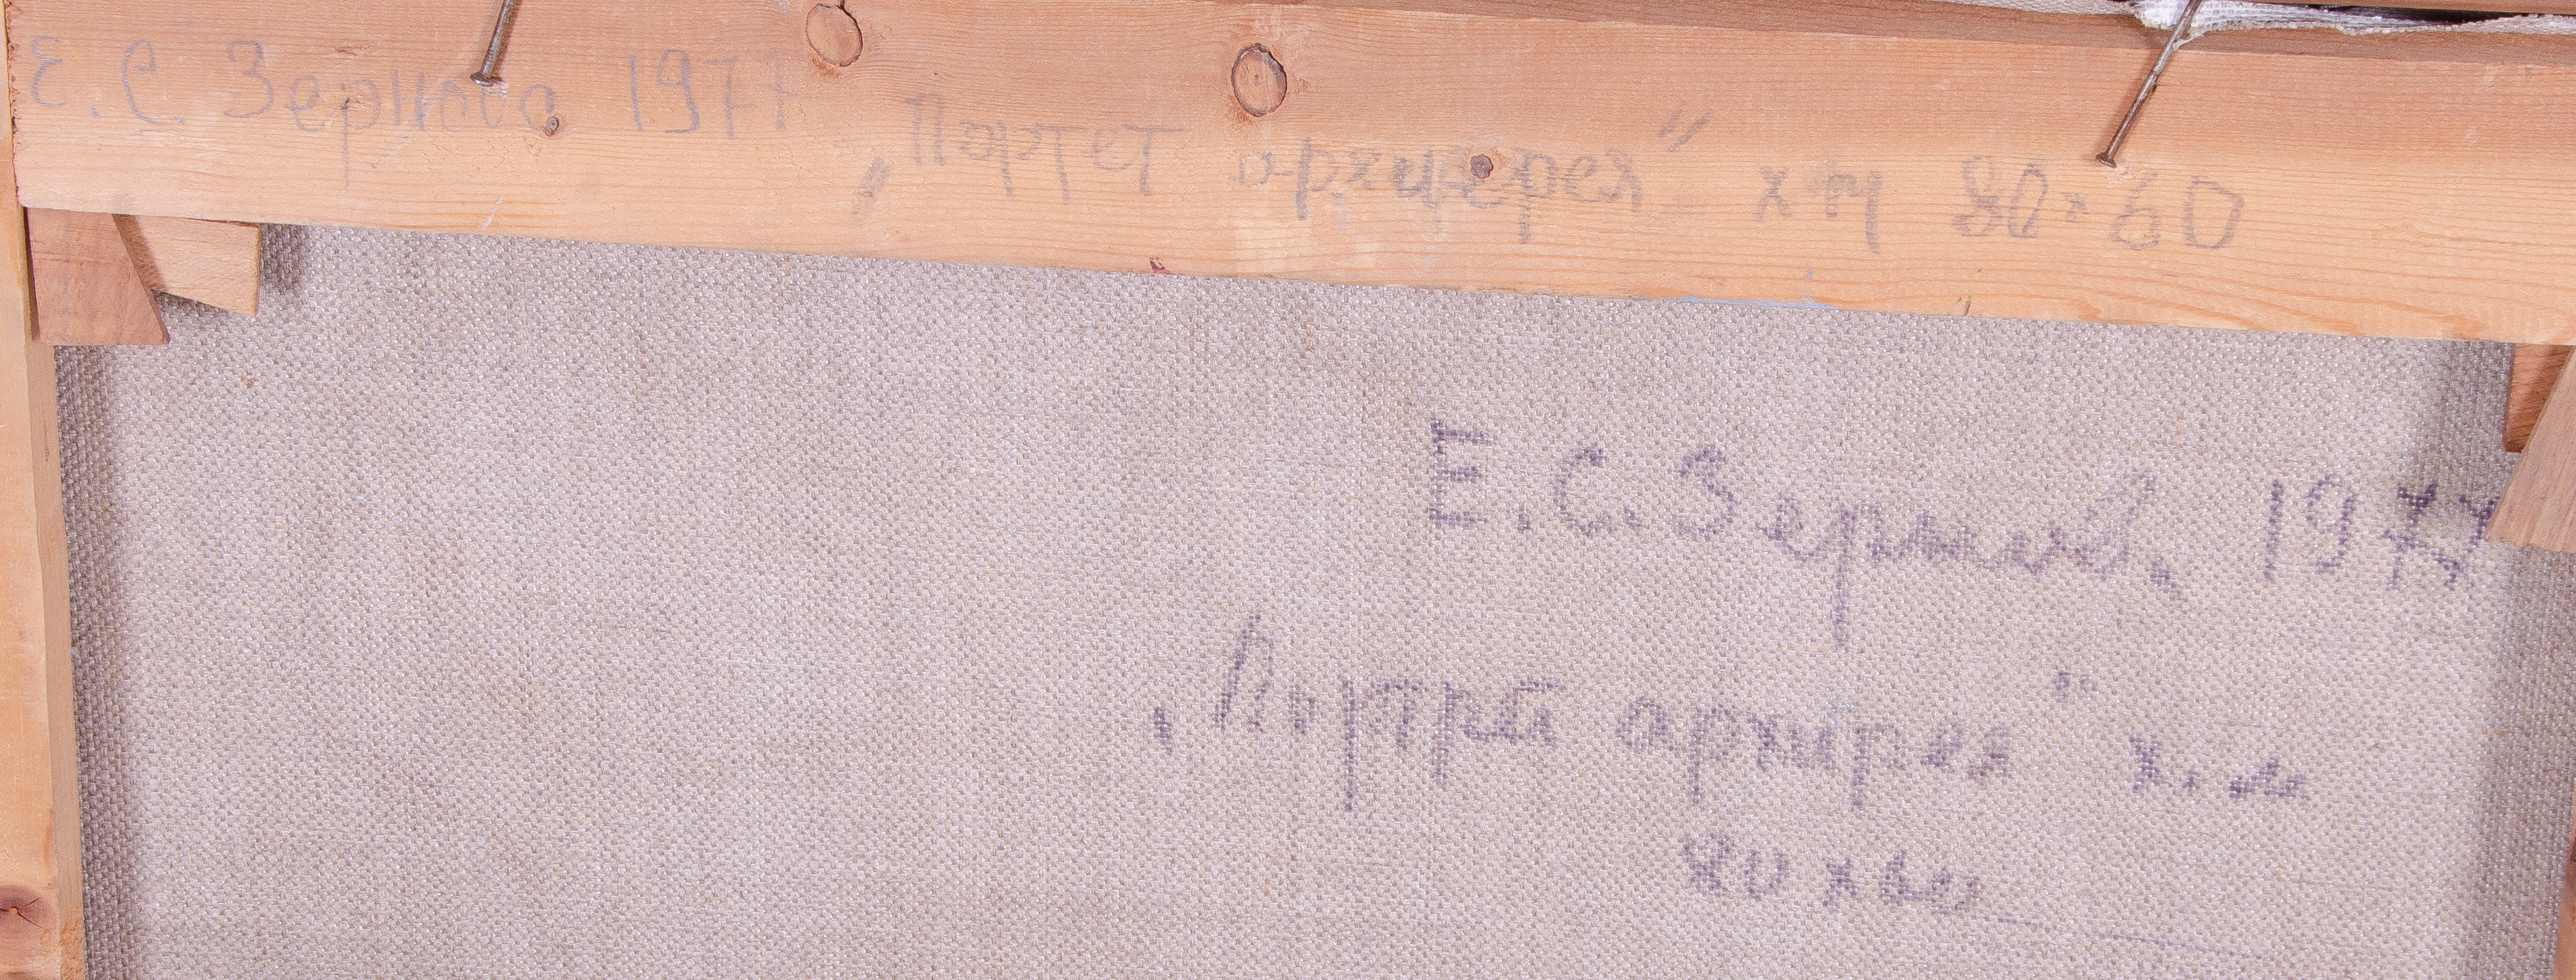 Е. С. Зернова 1977 „Портет архиерея" х м 80×60
Е. С. Зернова, 1977
„Портрет архирея" х. м
80 х 60